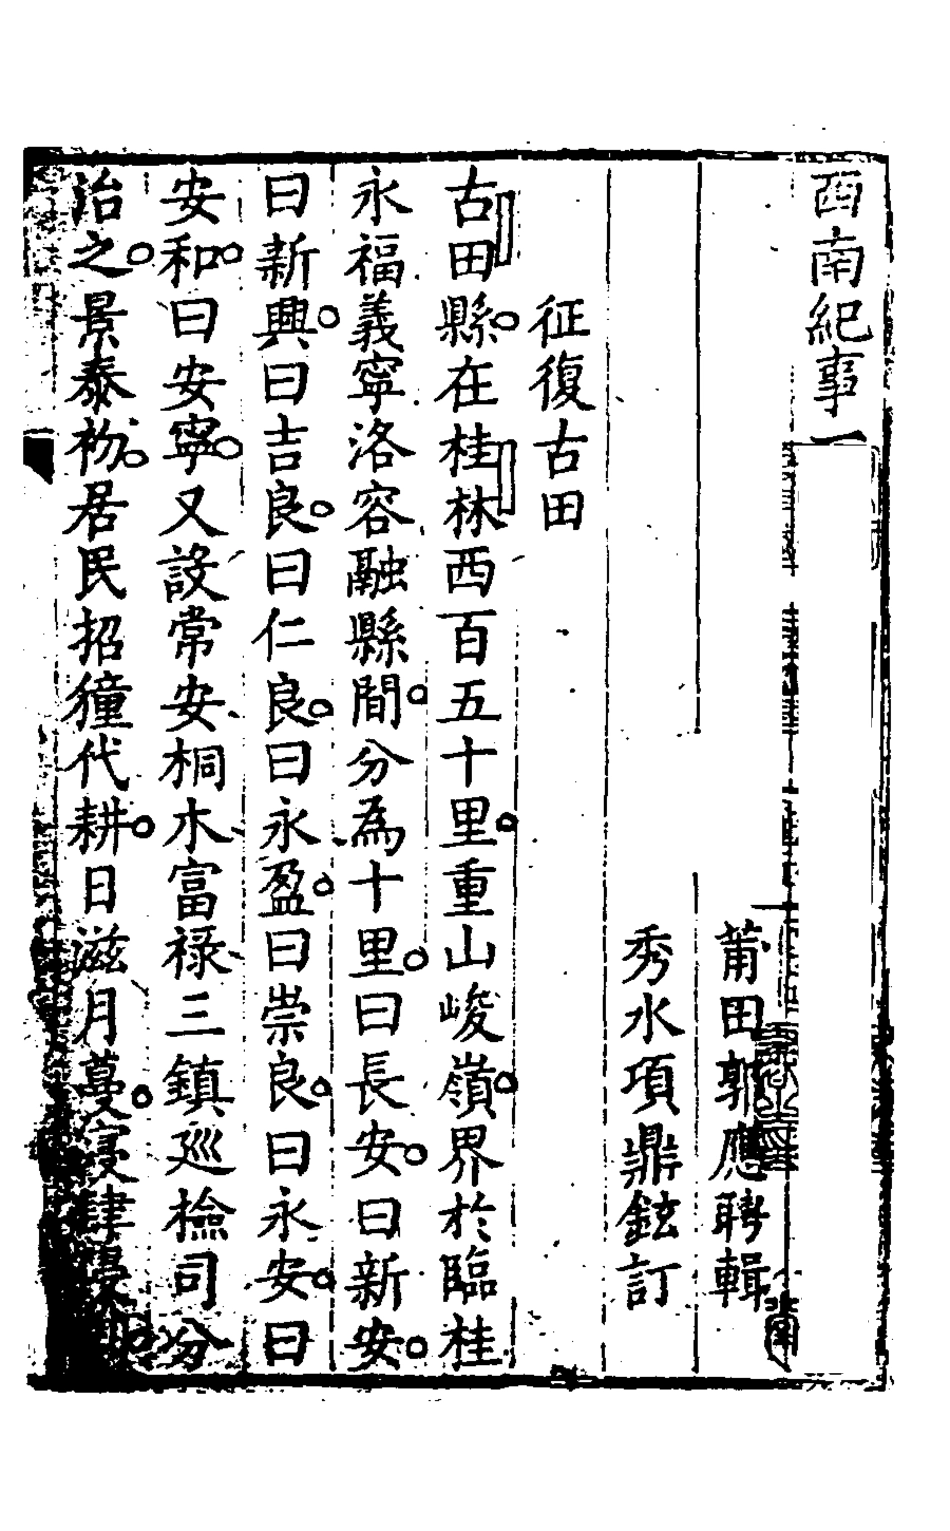 西南紀事一
莆田郭應聘輯
秀水項鼎鉉訂
征復古田
古田縣在桂林西百五十里重山峻嶺界於臨桂
永福義寧洛容融縣間分為十里曰長安曰新安
曰新興曰吉良曰仁良曰永盈曰崇良曰永安曰
安和曰安寧又設常安桐木富祿三鎮巡檢司分
治之景泰初居民招獞代耕日滋月蔓寖肆